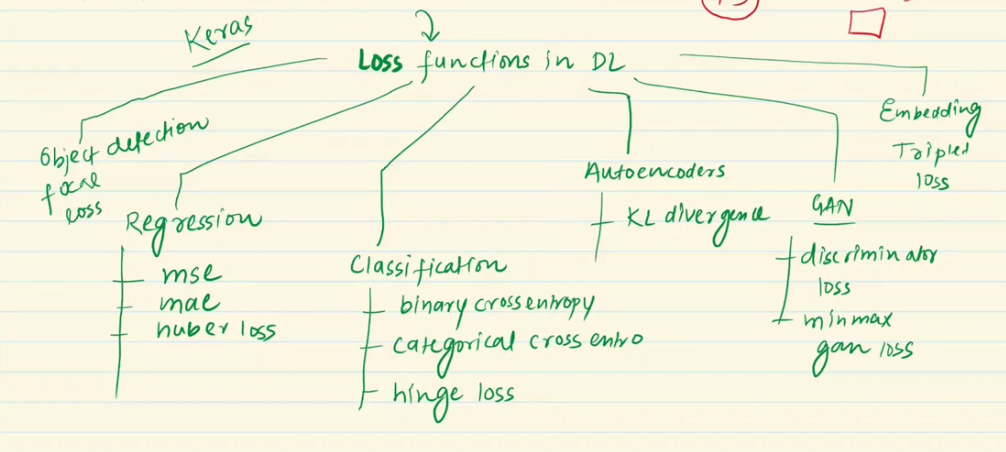 Keras
Loss functions in DL
Object detection
focal
loss
Regression
mse
mae
huber loss
Classification
binary crossentropy
categorical cross entro
hinge loss
Autoencoders
KL divergence
GAN
discriminator
loss
minmax
gan loss
Embedding
Triplet
loss